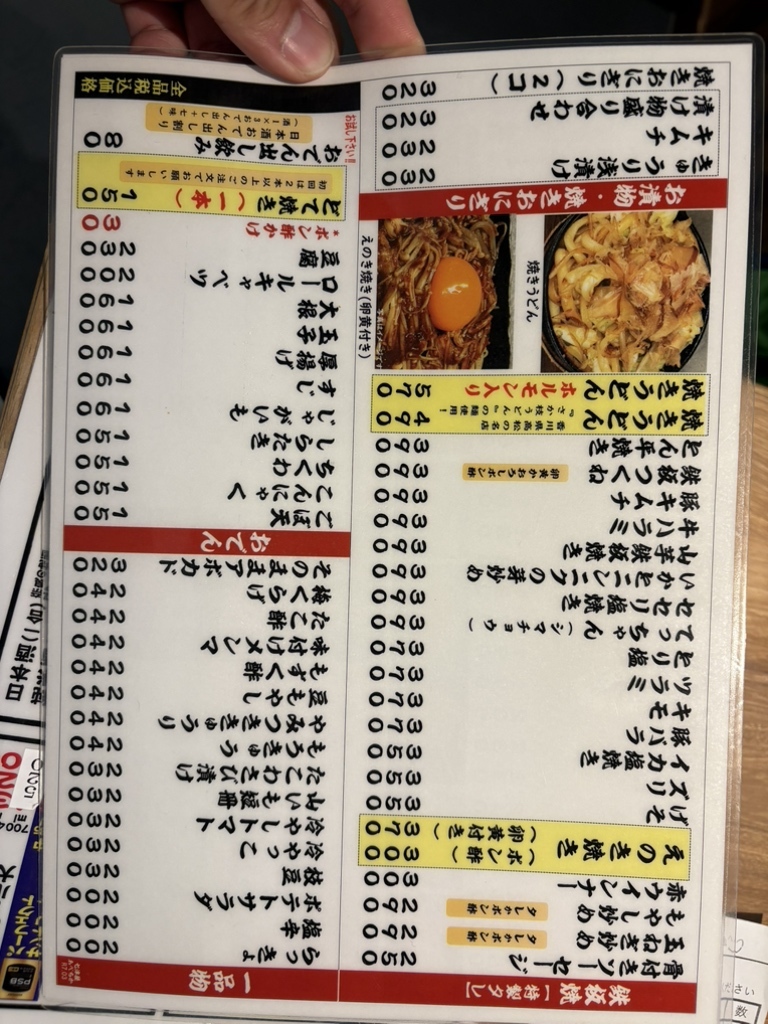 鉄板焼【特製タレ】
骨付きソーセージ 250
玉ねぎ炒め タレかポン酢 290
もやし炒め タレかポン酢 290
赤ウインナー 300
えのき焼き (ポン酢) 300
(卵黄付き) 370
げそ 350
ズリ 350
イカ塩焼き 350
豚バラ 370
キモ 370
ツラミ 370
とり塩 370
てっちゃん(シマチョウ) 390
セセリ塩焼き 390
いかとニンニクの芽炒め 390
山芋鉄板焼き 390
牛ハラミ 390
豚キムチ 390
鉄板つくね 卵黄かおろしポン酢 390
とん平焼き 390
焼きうどん 香川県高松の名店『さか枝うどん』の麺使用! 490
焼きうどん ホルモン入り 570
焼きうどん
えのき焼き(卵黄付き)
写真はイメージです
お漬物・焼きおにぎり
きゅうり浅漬け 230
キムチ 230
漬け物盛り合わせ 320
焼きおにぎり(2コ) 320
一品物
らっきょ 200
塩辛 200
ポテトサラダ 200
枝豆 230
冷やっこ 230
冷やしトマト 230
山いも短冊 230
たこわさび漬け 230
もろきゅう 240
やみつききゅうり 240
豆もやし 240
もずく酢 240
味付けメンマ 240
たこ酢 240
梅くらげ 240
そのままアボカド 320
おでん
ごぼ天 150
こんにゃく 150
ちくわ 150
しらたき 150
じゃがいも 190
すじ 190
厚揚げ 190
玉子 190
大根 190
ロールキャベツ 200
豆腐 230
*ポン酢かけ 30
とて焼き(一本) 150
初回は2本以上のご注文でお願いします
お試し下さい!!
おでん出し飲み 80
日本酒おでん出し割り
(酒1×3おでん出し+七味)
全品税込価格
日本酒(1合)